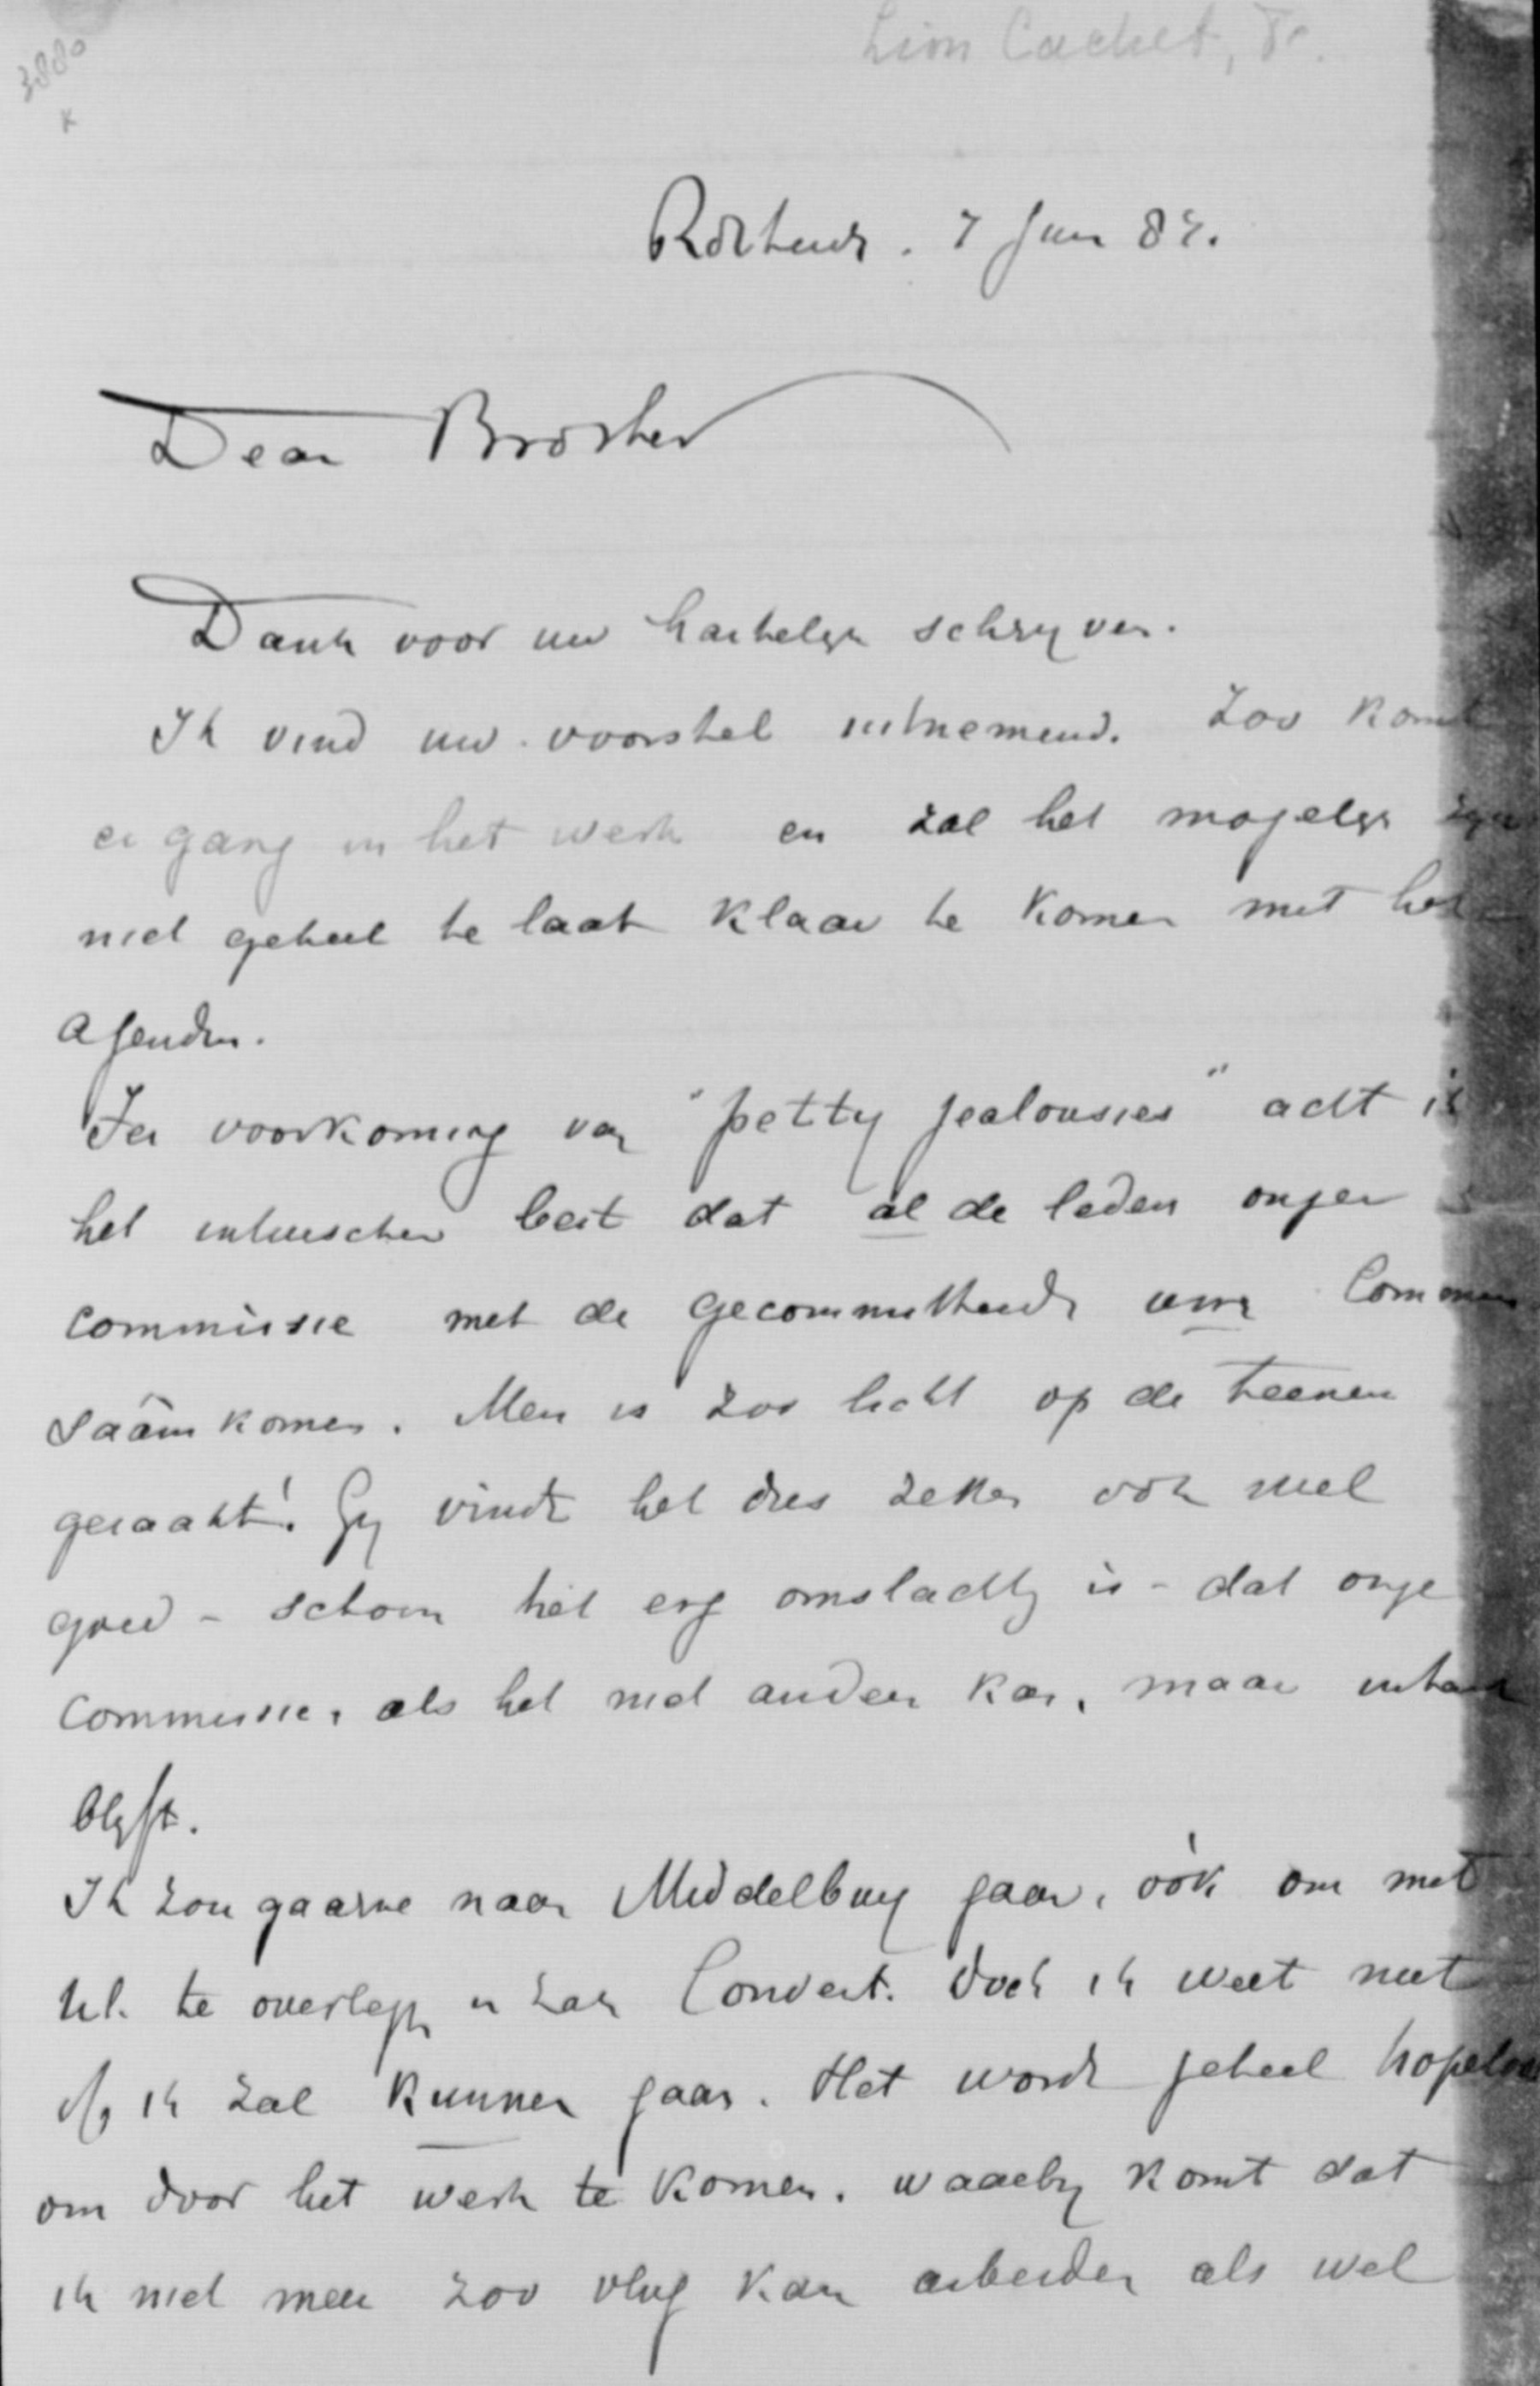 3880
K
Lion Cachet, F.
Rotterd. 7 Jun 87.
Dear Brother
Dank voor uw hartelyk schryven.
Ik vind uw voorstel uitnemend. Zoo komt
er gang in het werk en zal het mogelyk zyn
niet geheel te laat klaar te komen met het
Agendum.
Ter voorkoming van "petty jealousies" acht ik
het intusschen best dat al de leden onzer
commissie met de gecommitteerde uwer Comm
saâm komen. Men is zoo licht op de teenen
geraakt! Gy vindt het dus zeker ook wel
goed - schoon het erg omslachtig is - dat onze
commissie, als het niet anders kan, maar intact
blyft.
Ik zou gaarne naar Middelburg gaan, óók om met
Ul. te overleggen u zake Convent. Doch ik weet niet
of ik zal kunnen gaan. Het wordt geheel hopeloos
om door het werk te komen. waarby komt dat
ik niet meer zoo vlug kan arbeiden als wel